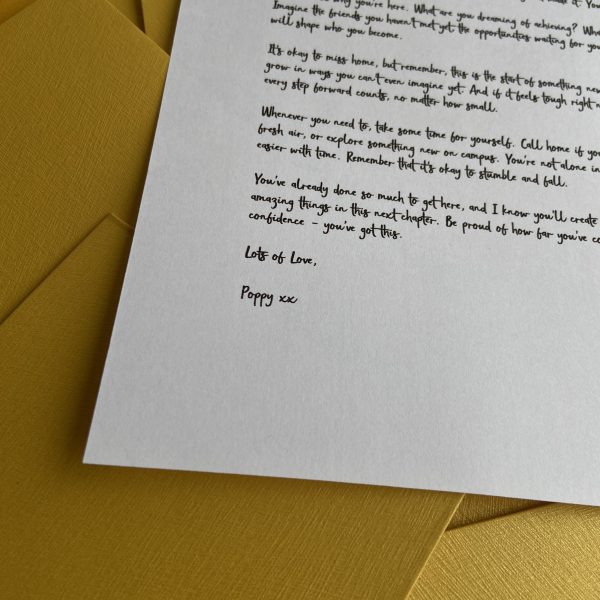 why you're here. What are you dreaming of achieving?
Imagine the friends you haven't met yet the opportunities waiting for you
will shape who you become.
It's okay to miss home, but remember, this is the start of something new
grow in ways you can't even imagine yet. And if it feels tough right
every step forward counts, no matter how small.
Whenever you need to, take some time for yourself. Call home if you
fresh air, or explore something new on campus. You're not alone in
easier with time. Remember that it's okay to stumble and fall.
You've already done so much to get here, and I know you'll create
amazing things in this next chapter. Be proud of how far you've
confidence – you've got this.
Lots of Love,
Poppy xx